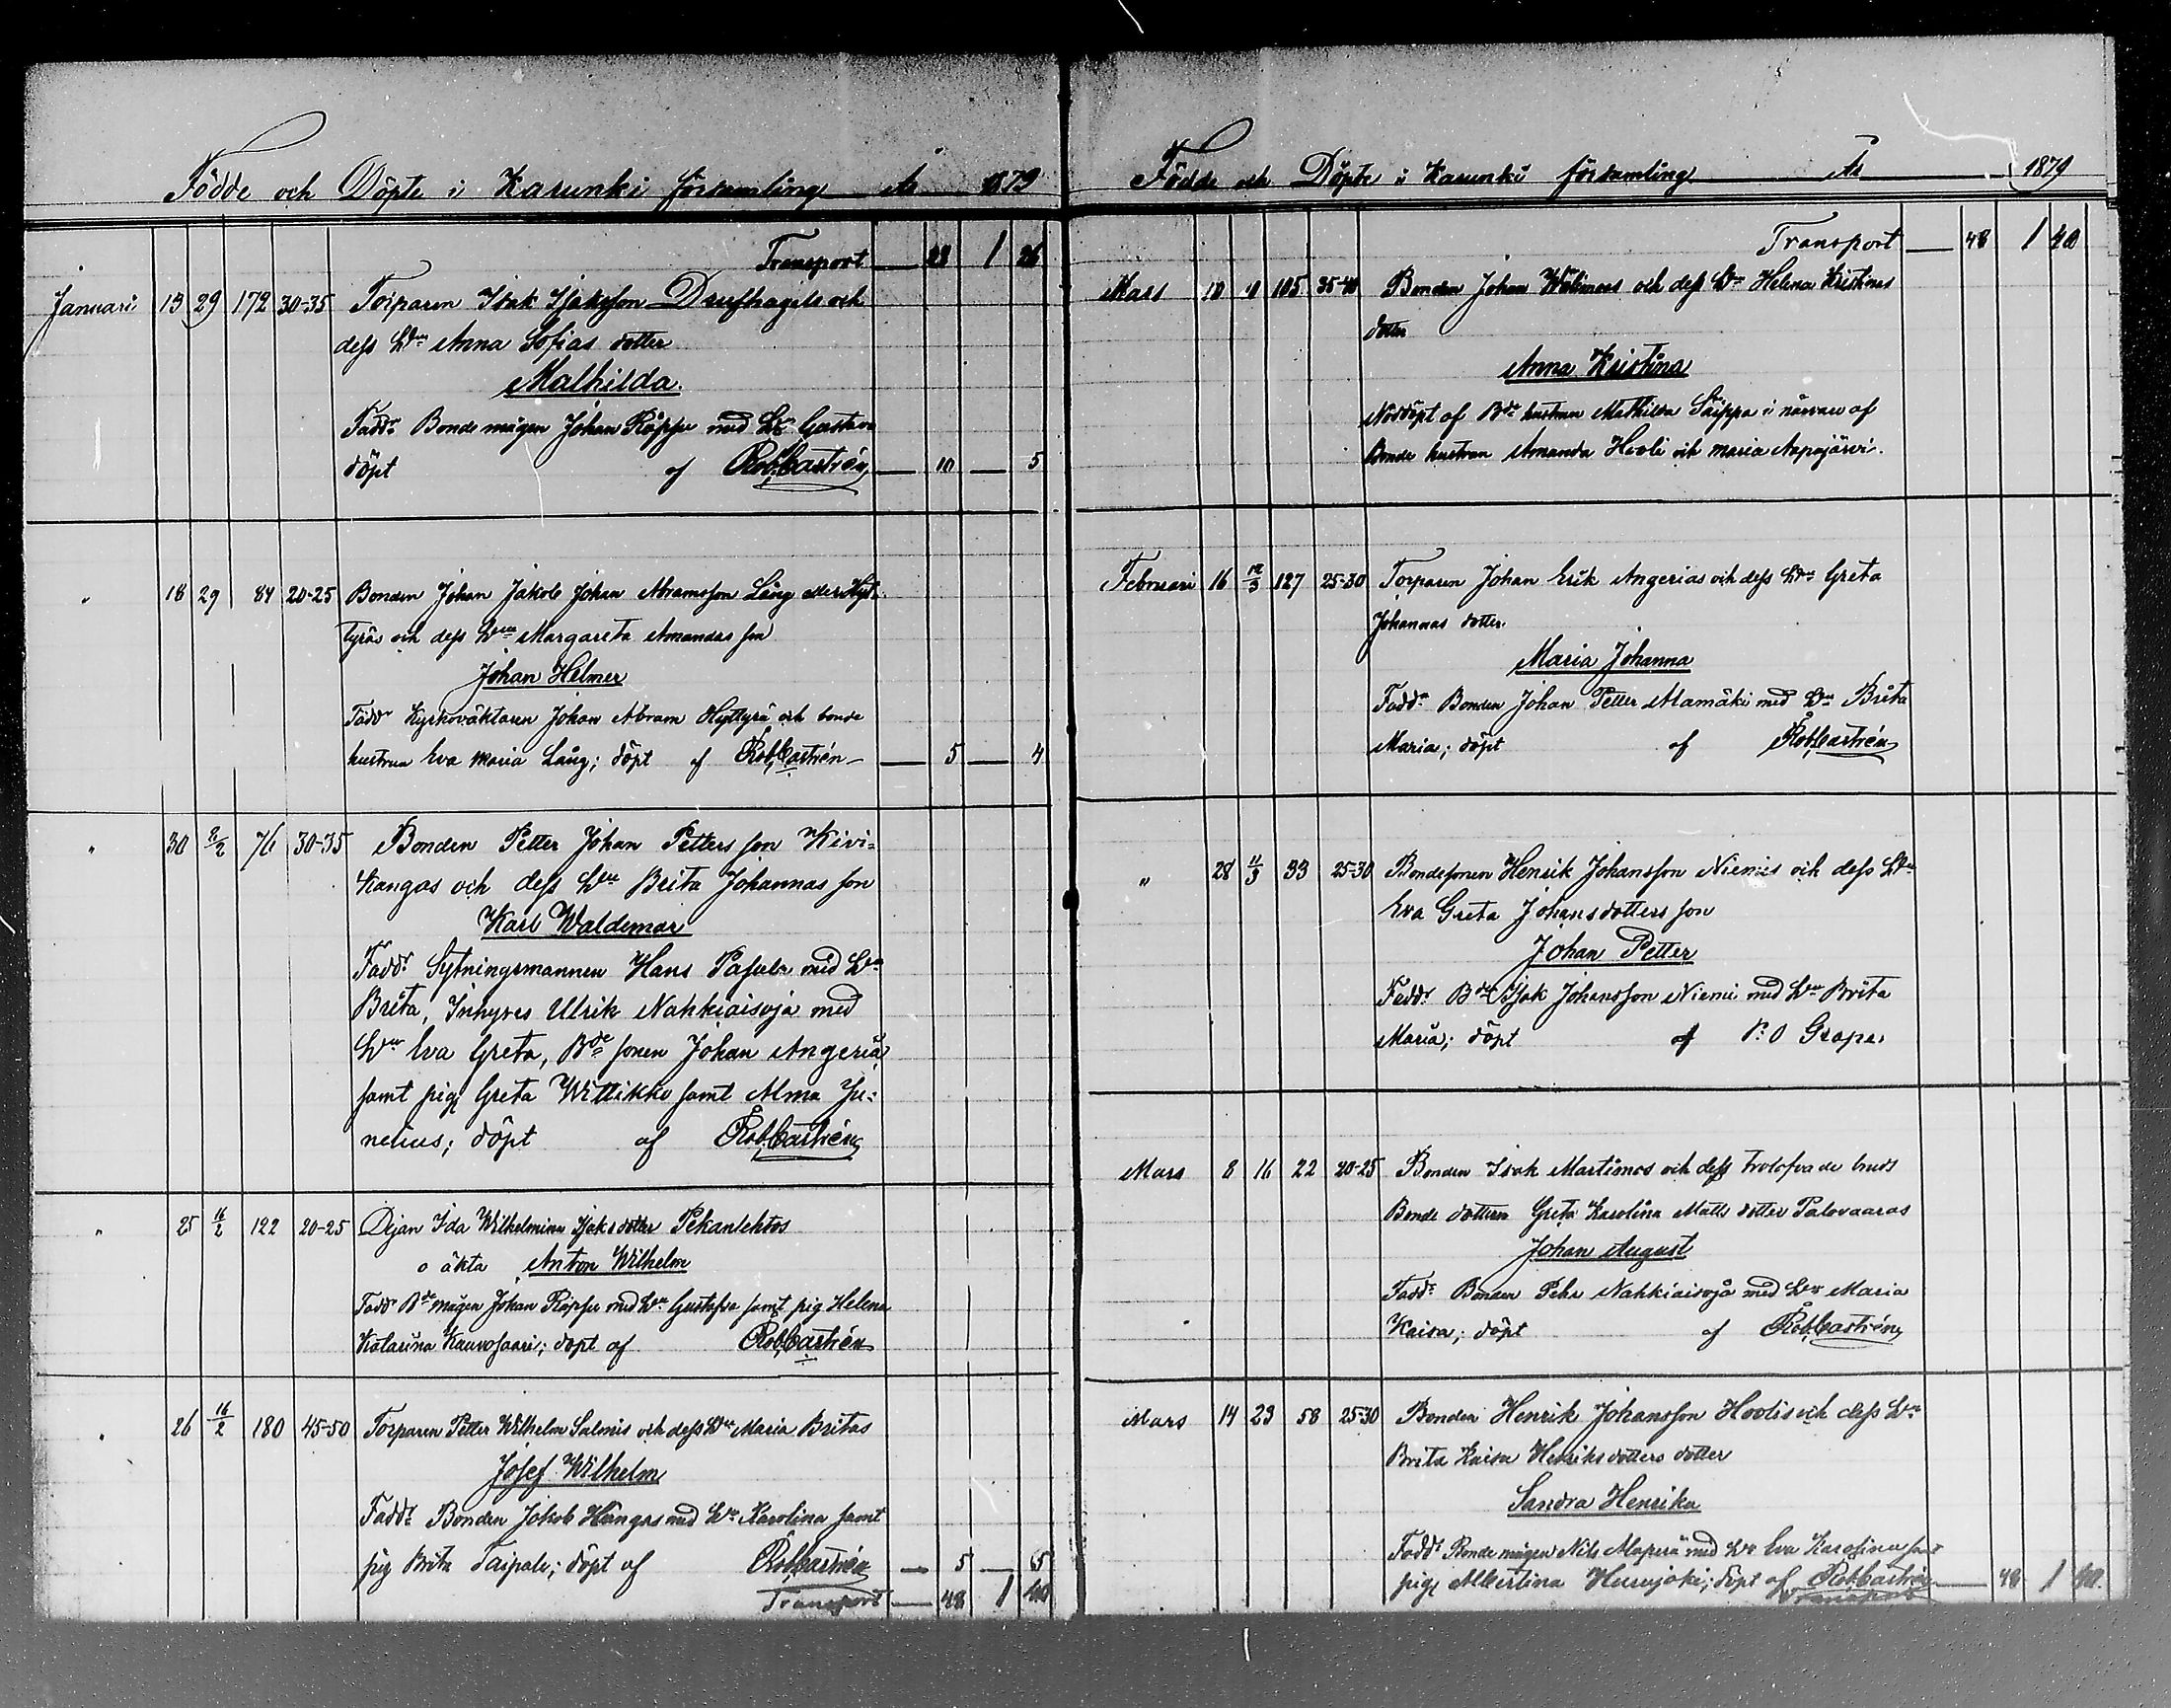 Födde och Döpte i Karunki församling År 1879
Transport — 28 1 26
Januari 13 29 172 30-35 Torparen Isak Isaksson och
dess Hru Anna Sofias dotter
Mathilda.
Faddr Bondemågen Johan Röpsu med Hu Gustava
döpt af Rob. Castrén — 10 — 5
" 18 29 84 20-25 Bonden Johan Jakob Johan Abramsson Lång eller Hyt-
tyräs och dess Hru Margareta Amandas son
Johan Helmer
Faddr Kyrkoväktaren Johan Abram Hyttyrä och bonde
hustrun Eva Maria Lång; döpt af Rob. Castrén — 5 — 4
" 30 2/2 76 30-35 Bonden Petter Johan Petters son Kivi=
kangas och dess Hru Brita Johannas son
Karl Waldemar
Faddr Sytningsmannen Hans med Hru
Brita, Inhyres Ulrik Nahkiaisoja med
Hru Eva Greta, Bde sonen Johan Angeria
samt pig Greta Wittikko samt Alma Ju=
nelius; döpt af Rob. Castrén
" 25 16/2 122 20-25 Dejan Ida Wilhelmina Isaks dotter Pekanlehtos
o äkta Anton Wilhelm
Faddr Bde mågen Johan Röpsu med Hru Gustafva samt pig Helena
Katarina Kauvosaari; döpt af Rob. Castrén
" 26 16/2 180 45-50 Torparen Petter Wilhelm Salmis och dess Hru Maria Britas
Josef Wilhelm
Faddr Bonden Jakob Kangas med Hru Karolina samt
pig Brita Taipale; döpt af Rob. Castrén — 5 — 5
Transport — 48 1 40
Födde och Döpte i Karunki församling År 1879
Transport — 48 1 40
Mars 10 10 105 35-40 Bonden Johan Wälimaas och dess Hru Helena Kristinas
dotter
Anna Kristina
Nöddöpt af Bde hustrun Mathilda Säippa i närvaro af
Bonde hustrun Amanda Hooli och Maria Aapajärvi.
Februari 16 12/3 127 25-30 Torparen Johan Erik Angerias och dess Hru Greta
Johannas dotter.
Maria Johanna
Faddr Bonden Johan Petter Alamäki med Hru Brita
Maria; döpt af Rob. Castrén
" 28 4/3 33 25-30 Bondesonen Henrik Johansson Niemis och dess Hru
Eva Greta Johansdotters son
Johan Petter
Faddr Bde Isak Johansson Niemi med Hru Brita
Maria; döpt af P. O Grape.
Mars 8 16 22 20-25 Bonden Isak Martimos och dess trolofvade brud
Bonde dottern Greta Karolina Matts dotter Palovaaras
Johan August
Faddr Bonden Pehr Nahkiaisoja med Hru Maria
Kaisa; döpt af Rob. Castrén
Mars 14 23 58 25-30 Bonden Henrik Johansson Hoolis och dess Hru
Brita Kaisa Henriksdotters dotter
Sandra Henrika
Faddr Bonde mågen Nils Alaperä med Hru Eva Karolina samt
pig Albertina döpt af Rob. Castrén — 48 1 40.
Transport